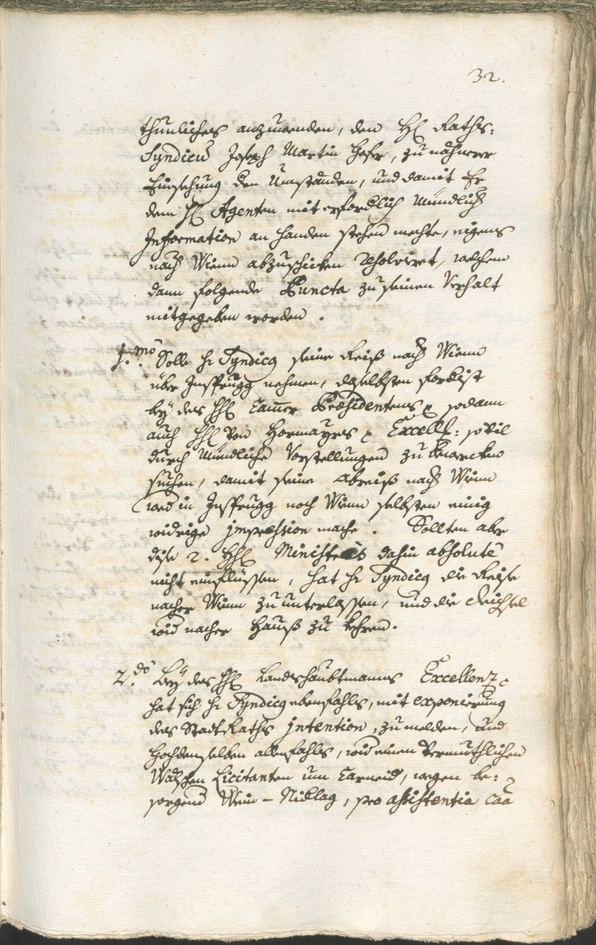 32.
thunliches anzuwenden, den H. Raths-
Syndicus Joseph Martin Hofer, zu näherer
Einsehung den Umständen, und damit Er
dem H. Agenten mit erforderlich Mündlich
Information an Handen stehen mechte, eigens
nach Wienn abzuschicken resolviret, welchem
dann folgende Puncta zu seinem Verhalt
mitgegeben worden.
1.mo Solle H. Syndicus seine Reiß nach Wienn
über Insprugg nehmen, daselbsten
bey des H. Camer Præsidentens sodann
auch H. von Hormayrs Excell: sovil
durch Mündliche Vorstellungen zu bewercken
suchen, damit seine Abreiß nach Wienn
wed in Insprugg noch Wienn selbsten einig
widrige impression mache. Sollten aber
dise 2. H. Ministeris dahin absolute
nicht einflüssen, hat H. Syndicus die Reise
nacher Wienn zu unterlassen, und die
wid nacher Hauß zu kehren.
2.do Bey des H. Landshaubtmanns Excellenz
hat sich H. Syndicus ebenfahls, mit exponierung
des StadtRaths intention, zu melden, und
Hochdemselben allenfahls, wid einen Vermuthlichen
Wälschen Licitanten um Carneid, wegen be-
sorgend Wein-Niderlag, pro assistentia